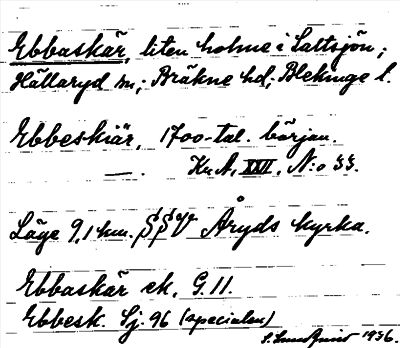 Ebbaskär, liten holme i Saltsjön;
Hällaryd sn; Bräkne hd; Blekinge l.
Ebbeskiär, 1700-tal. början.
—. Kr A, XXII, N:o 33.
Läge 9,1 km. SSV Åryds kyrka.
Ebbaskär ek. G.11.
Ebbesk. Sj. 96 (specialen)
1936.